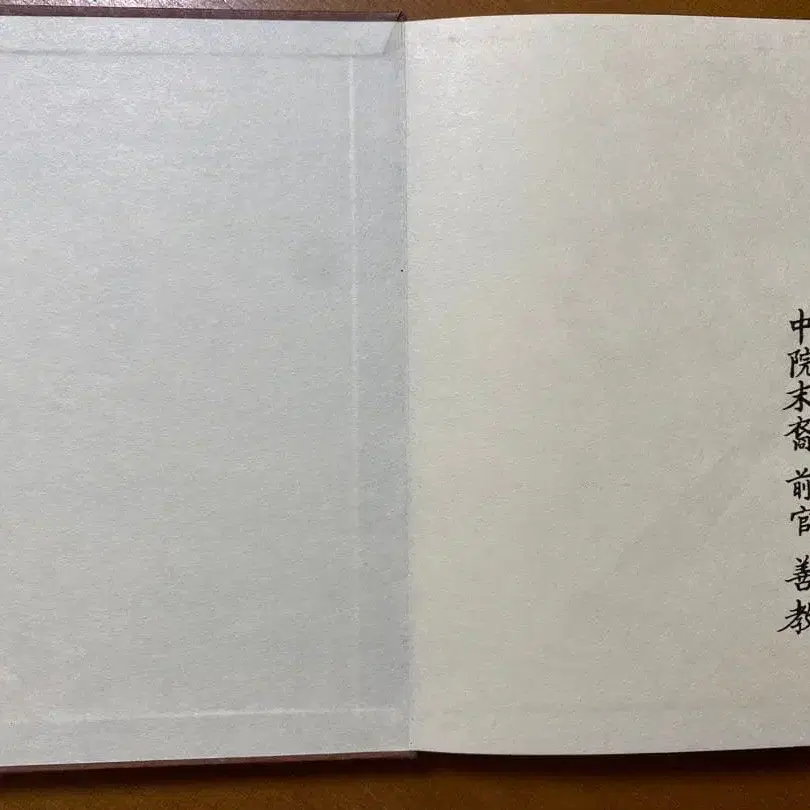 中院末裔 前官 善教